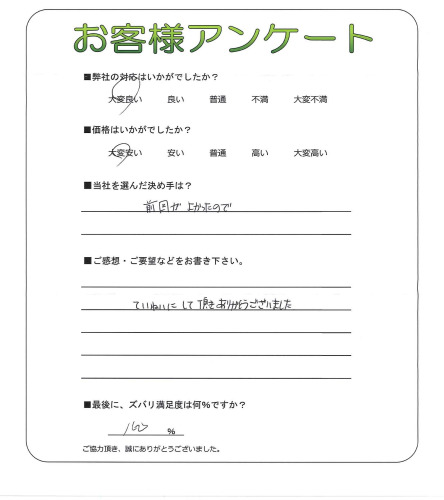 お客様アンケート
■弊社の対応はいかがでしたか？
大変良い 良い 普通 不満 大変不満
■価格はいかがでしたか？
大変安い 安い 普通 高い 大変高い
■当社を選んだ決め手は？
前回が よかったので
■ご感想・ご要望などをお書き下さい。
ていねいに して 頂き ありがとうございました
■最後に、ズバリ満足度は何％ですか？
100 ％
ご協力頂き、誠にありがとうございました。